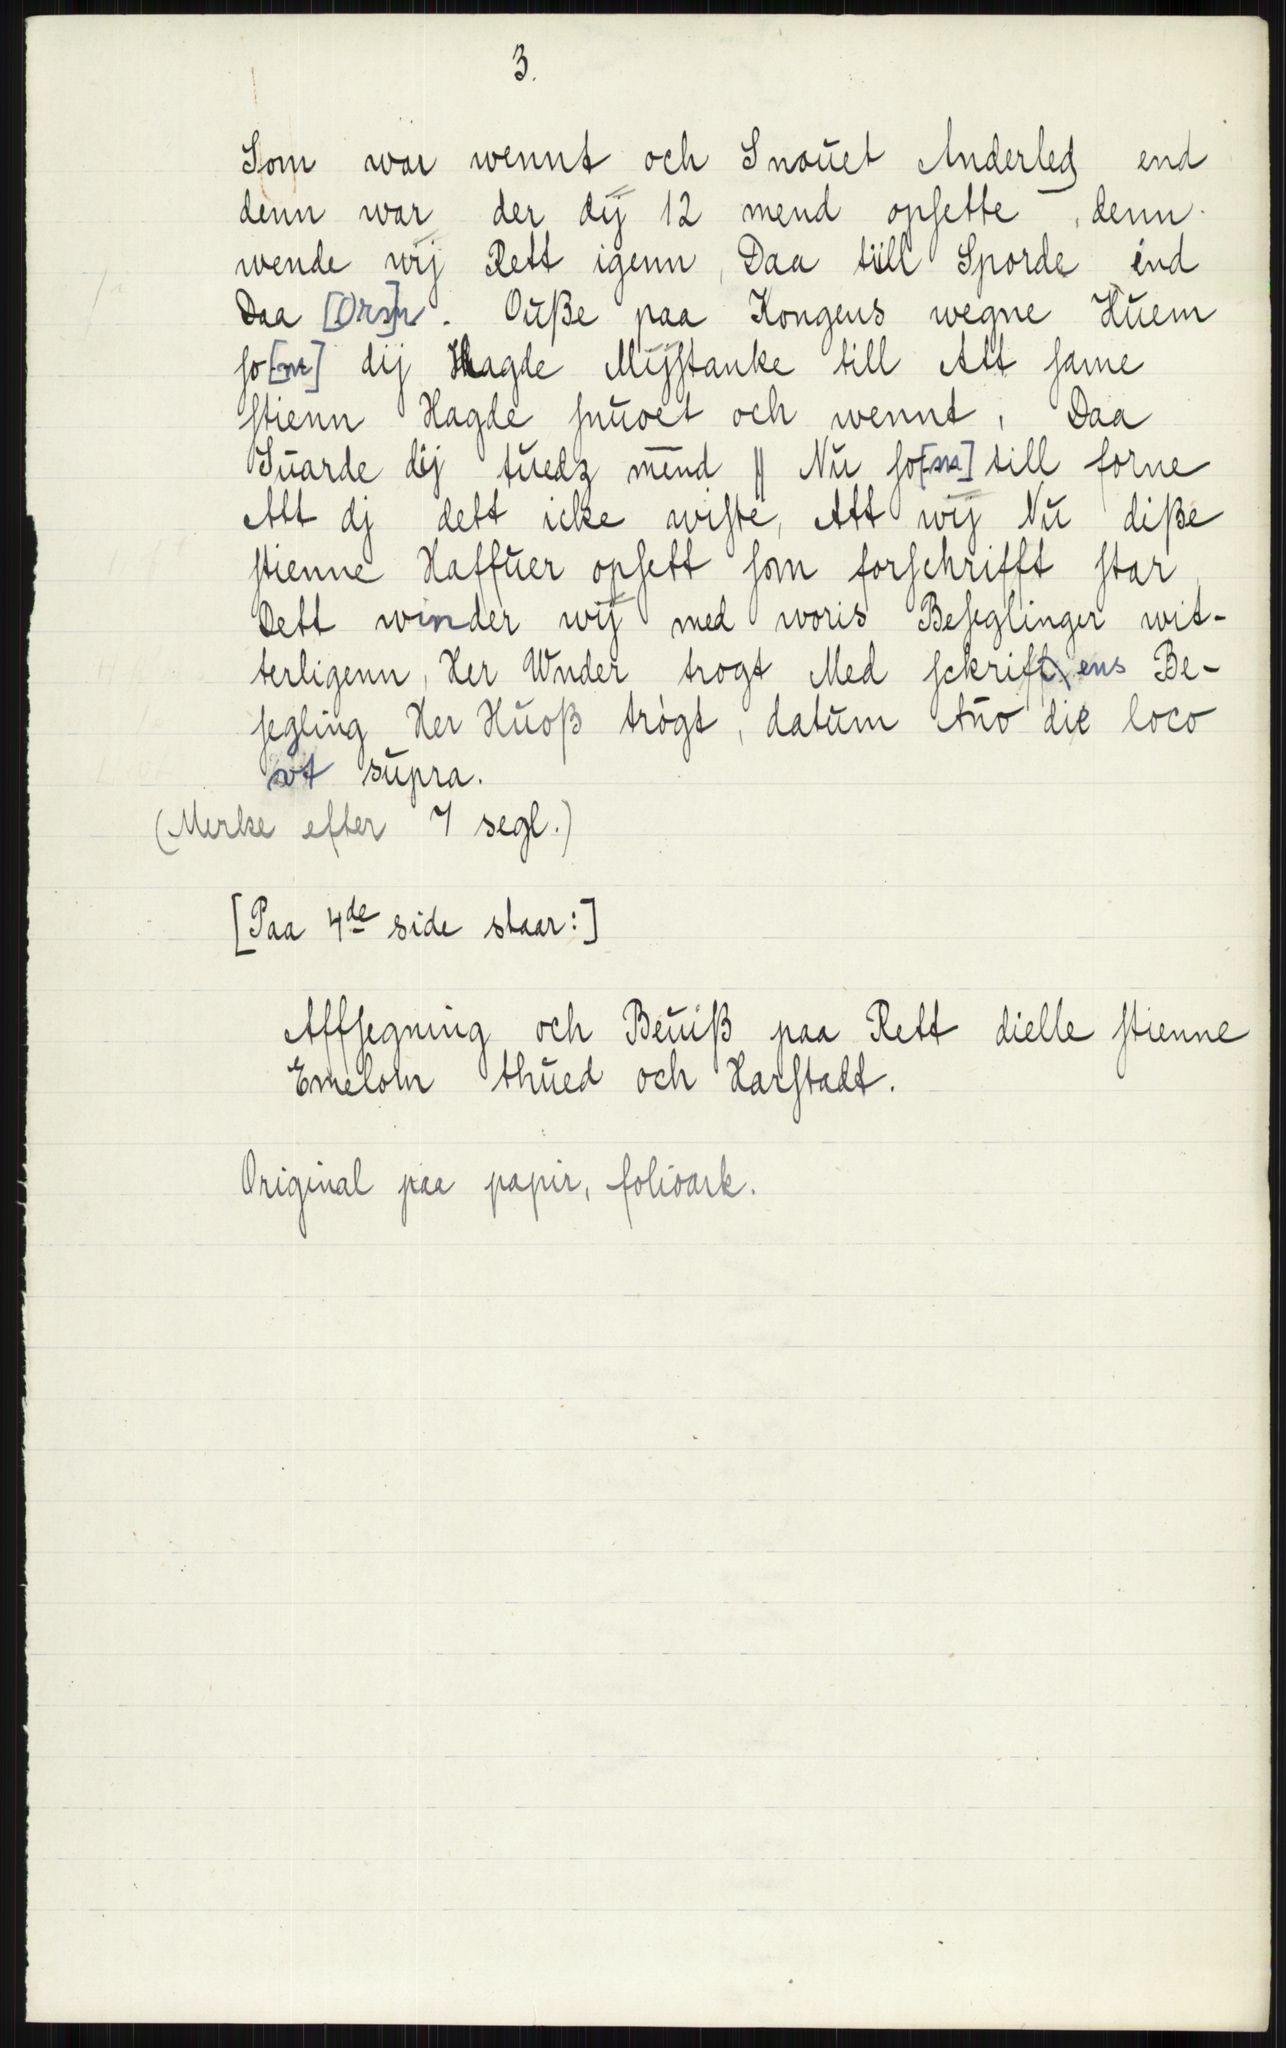 3.
Som war wennt och Snouet Anderledz end
denn war der dij 12 mend opsette, denn
wende wij Rett igenn, Daa till Sporde ind
Daa [Orm]. Oußе paa Kongens wegne Huem
so[m] dij Hagde Mijstanke till Att same
stienn Hagde snuoet och wennt, Daa
Suarde dij tuedz mend || Nu so[m] till forne
Att dj dett icke wiste, Att wij Nu diße
stienne Haffuer opsett som forschrifft star,
Dett winder wij med woris Beseglinger wit-
terligenn, Her Wnder trogt Med schriffens Be-
segling Her Huoß trógt, datum Año die loco
vt supra.
(Merke efter 7 segl.)
[Paa 4de side staar:]
Affsegning och Beuiß paa Rett dielle stienne
Emelom thued och Harstadt.
Original paa papir, folioark.